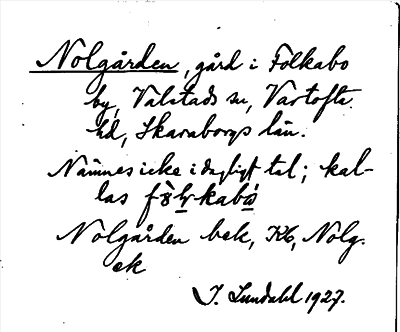 Nolgården, gård i Folkabo
by, Valstads sn, Vartofta
hd, Skaraborgs län.
Nämnes icke i dagligt tal; kal-
las
Nolgården bek, Kb, Nolg.
ek
I. Lundahl 1927.